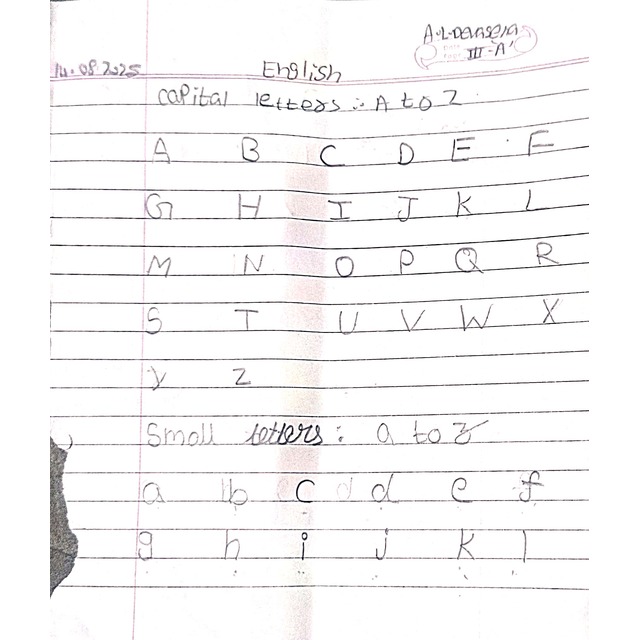 A.L.Devasena
III-'A'
14.08.2025
English
Capital letters : A to Z
A B C D E F
G H I J K L
M N O P Q R
S T U V W X
Y Z
Small letters : a to z
a b c d e f
g h i j k l